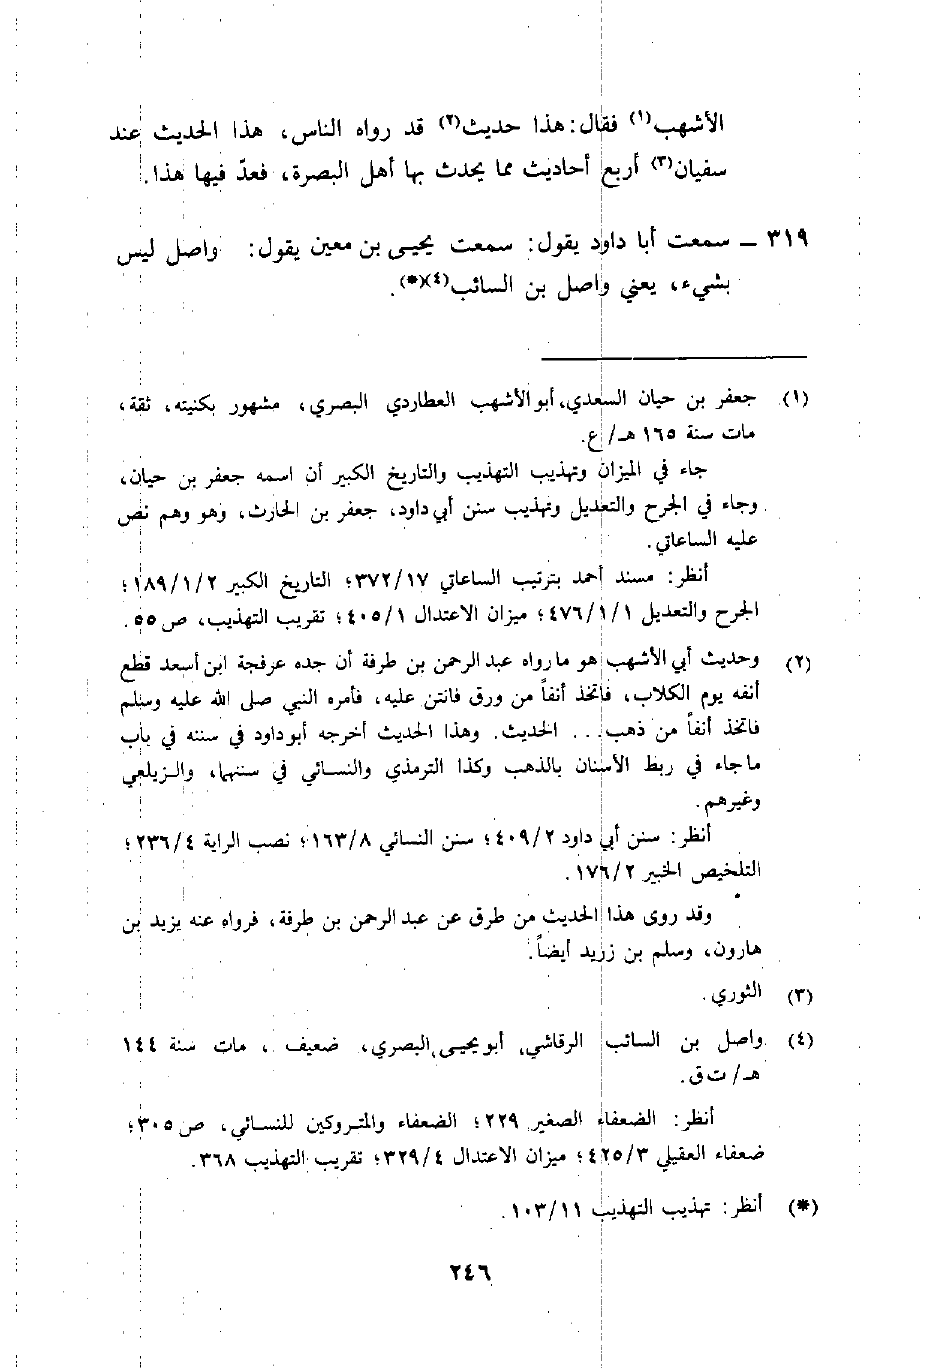 الأشهب(١) فقال: هذا حديث(٢) قد رواه الناس، هذا الحديث عند
سفيان(٣) أربع أحاديث مما يحدث بها أهل البصرة، فعدّ فيها هذا.
٣١٩ ــ سمعت أبا داود يقول: سمعت يحيى بن معين يقول: واصل ليس
بشيء، يعني واصل بن السائب(٤)(*).
(١) جعفر بن حيان السعدي، أبو الأشهب العطاردي البصري، مشهور بكنيته، ثقة،
مات سنة ١٦٥ هـ/ع.
جاء في الميزان وتهذيب التهذيب والتاريخ الكبير أن اسمه جعفر بن حيان،
وجاء في الجرح والتعديل وتهذيب سنن أبي داود، جعفر بن الحارث، وهو وهم نص
عليه الساعاتي.
أنظر: مسند أحمد بترتيب الساعاتي ٣٧٢/١٧؛ التاريخ الكبير ١٨٩/١/٢؛
الجرح والتعديل ٤٧٦/١/١؛ ميزان الاعتدال ٤٠٥/١؛ تقريب التهذيب، ص ٥٥.
(٢) وحديث أبي الأشهب هو ما رواه عبد الرحمن بن طرفة أن جده عرفجة ابن أسعد قطع
أنفه يوم الكلاب، فاتخذ أنفاً من ورق فانتن عليه، فأمره النبي صلى الله عليه وسلم
فاتخذ أنفاً من ذهب... الحديث. وهذا الحديث أخرجه أبو داود في سننه في باب
ما جاء في ربط الأسنان بالذهب وكذا الترمذي والنسائي في سننهما، والزيلعي
وغيرهم.
أنظر: سنن أبي داود ٤٠٩/٢؛ سنن النسائي ١٦٣/٨؛ نصب الراية ٢٣٦/٤؛
التلخيص الخبير ١٧٦/٢.
وقد روى هذا الحديث من طرق عن عبد الرحمن بن طرفة، فرواه عنه يزيد بن
هارون، وسلم بن زريد أيضاً.
(٣) الثوري.
(٤) واصل بن السائب الرقاشي، أبو يحيى البصري، ضعيف، مات سنة ١٤٤
هـ/ ت ق.
أنظر: الضعفاء الصغير ٢٢٩؛ الضعفاء والمتروكين للنسائي، ص ٣٠٥؛
ضعفاء العقيلي ٤٢٥/٣؛ ميزان الاعتدال ٣٢٩/٤؛ تقريب التهذيب ٣٦٨.
(*) أنظر: تهذيب التهذيب ١٠٣/١١.
٢٤٦